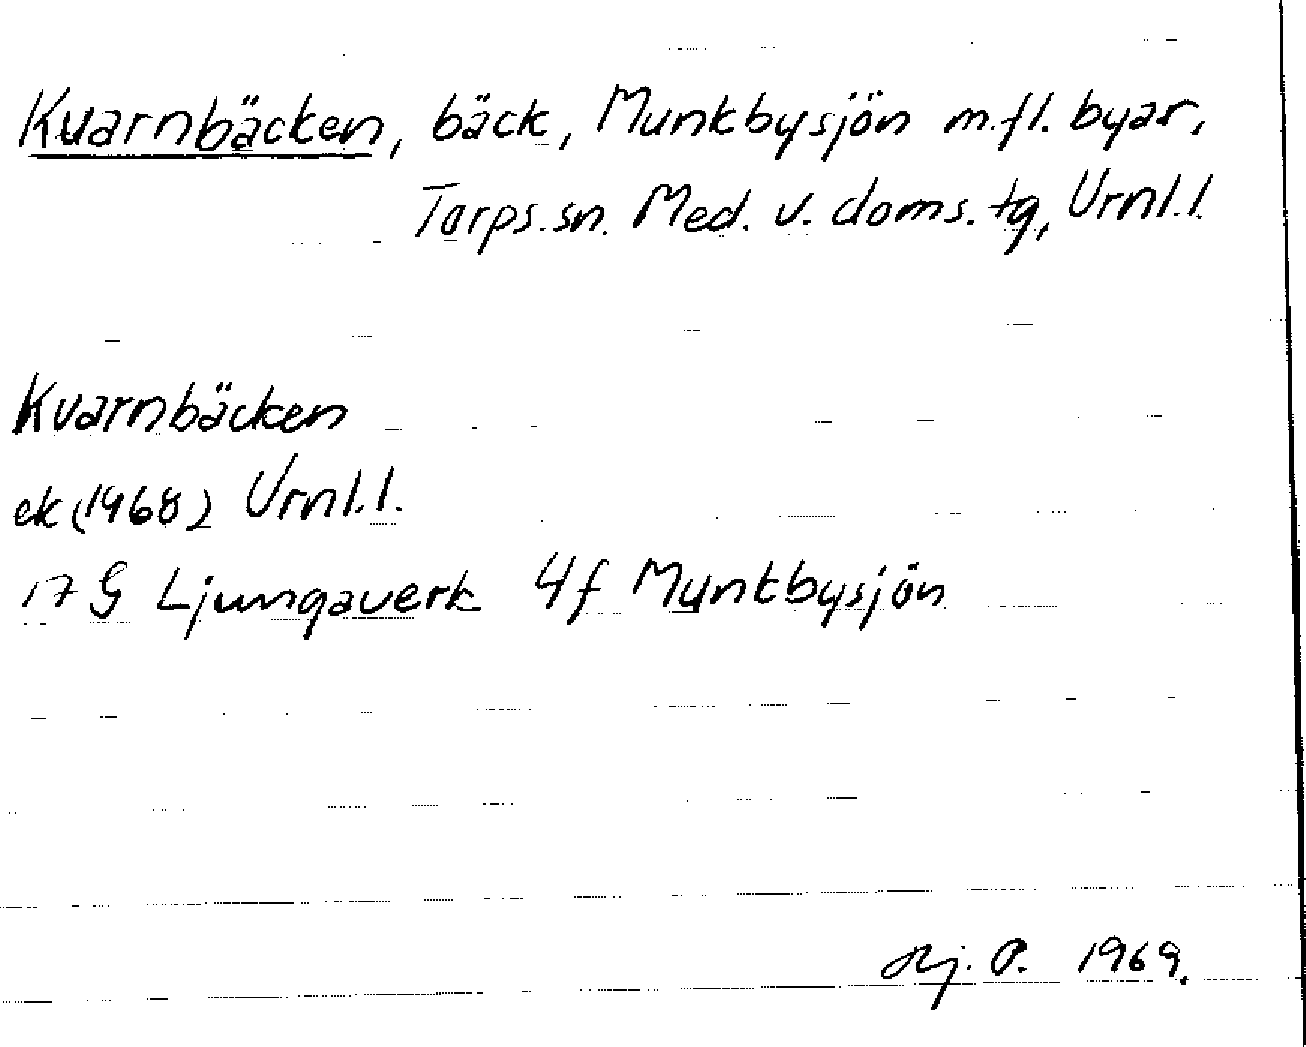 Kvarnbäcken, bäck, Munkbysjön m.fl. byar,
Torps.sn. Med. v. doms. tg, Vrnl.l.
Kvarnbäcken
ek (1968) Vrnl.l.
17 G Ljungaverk 4f Munkbysjön
Hj. P. 1969.